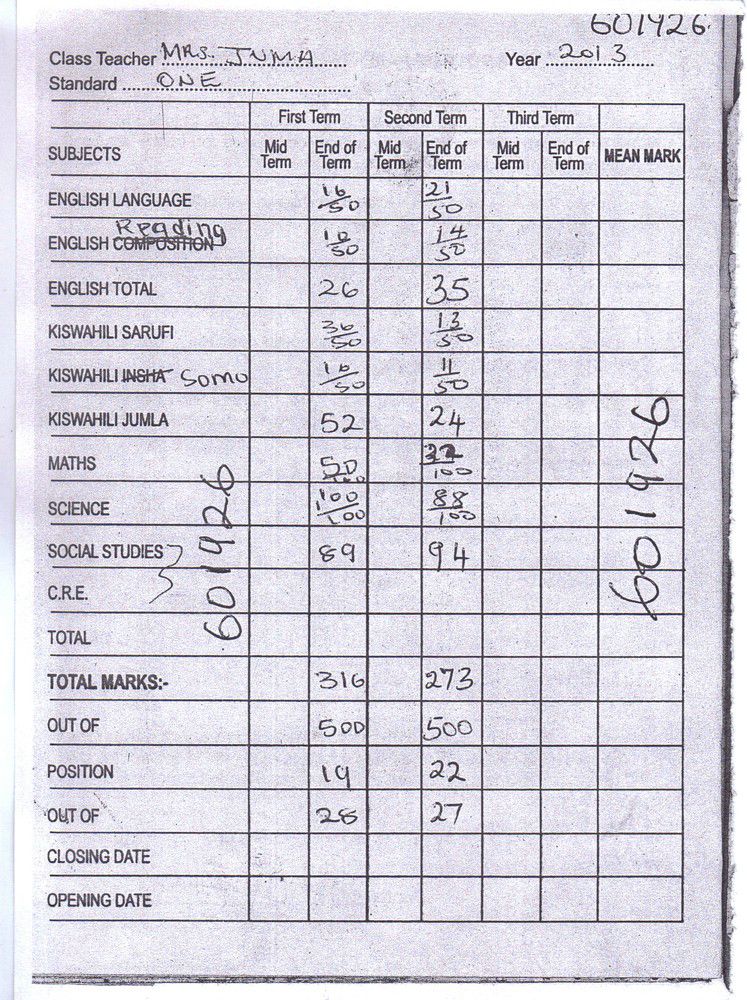 601926
Class Teacher MRS. JUMA Year 2013
Standard ONE
First Term Second Term Third Term
SUBJECTS Mid Term End of Term Mid Term End of Term Mid Term End of Term MEAN MARK
ENGLISH LANGUAGE 16/50 21/50
ENGLISH COMPOSITION Reading 10/50 14/50
ENGLISH TOTAL 26 35
KISWAHILI SARUFI 36/50 13/50
KISWAHILI INSHA Somo 16/50 11/50
KISWAHILI JUMLA 52 24
MATHS 50/100 32/100
SCIENCE 100/100 88/100
SOCIAL STUDIES 89 94
C.R.E.
TOTAL
TOTAL MARKS:- 316 273
OUT OF 500 500
POSITION 19 22
OUT OF 28 27
CLOSING DATE
OPENING DATE
601926
601926